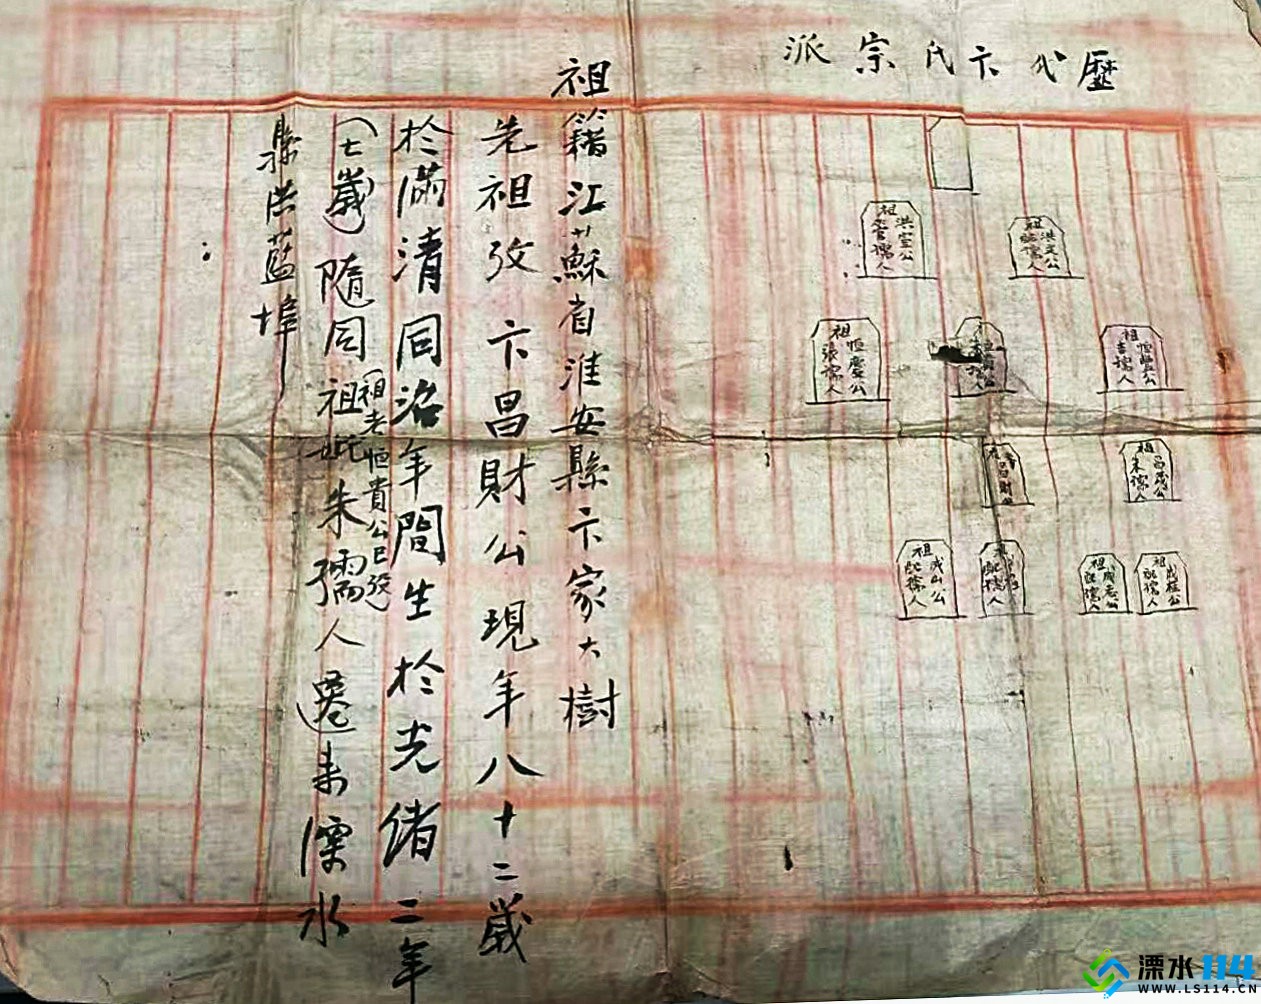 歷代卞氏宗派
祖籍江蘇省淮安縣卞家大樹
先祖攷卞昌財公現年八十二歲
於滿清同治年間生於光緒二年
(七歲)隨同祖妣朱孺人遷来溧水
(祖考恒貴公已歿)
縣洪藍埠
洪宣公
祖 孺人
洪 公
祖妣 孺人
恒慶公
祖張孺人
公
孺人
恒豐公
祖李孺人
昌財
昌茂公
祖朱孺人
成山公
祖妣 孺人
孺人
成志公
祖妣 孺人
成楨公
祖妣孺人
溧水114
WWW.LS114.CN